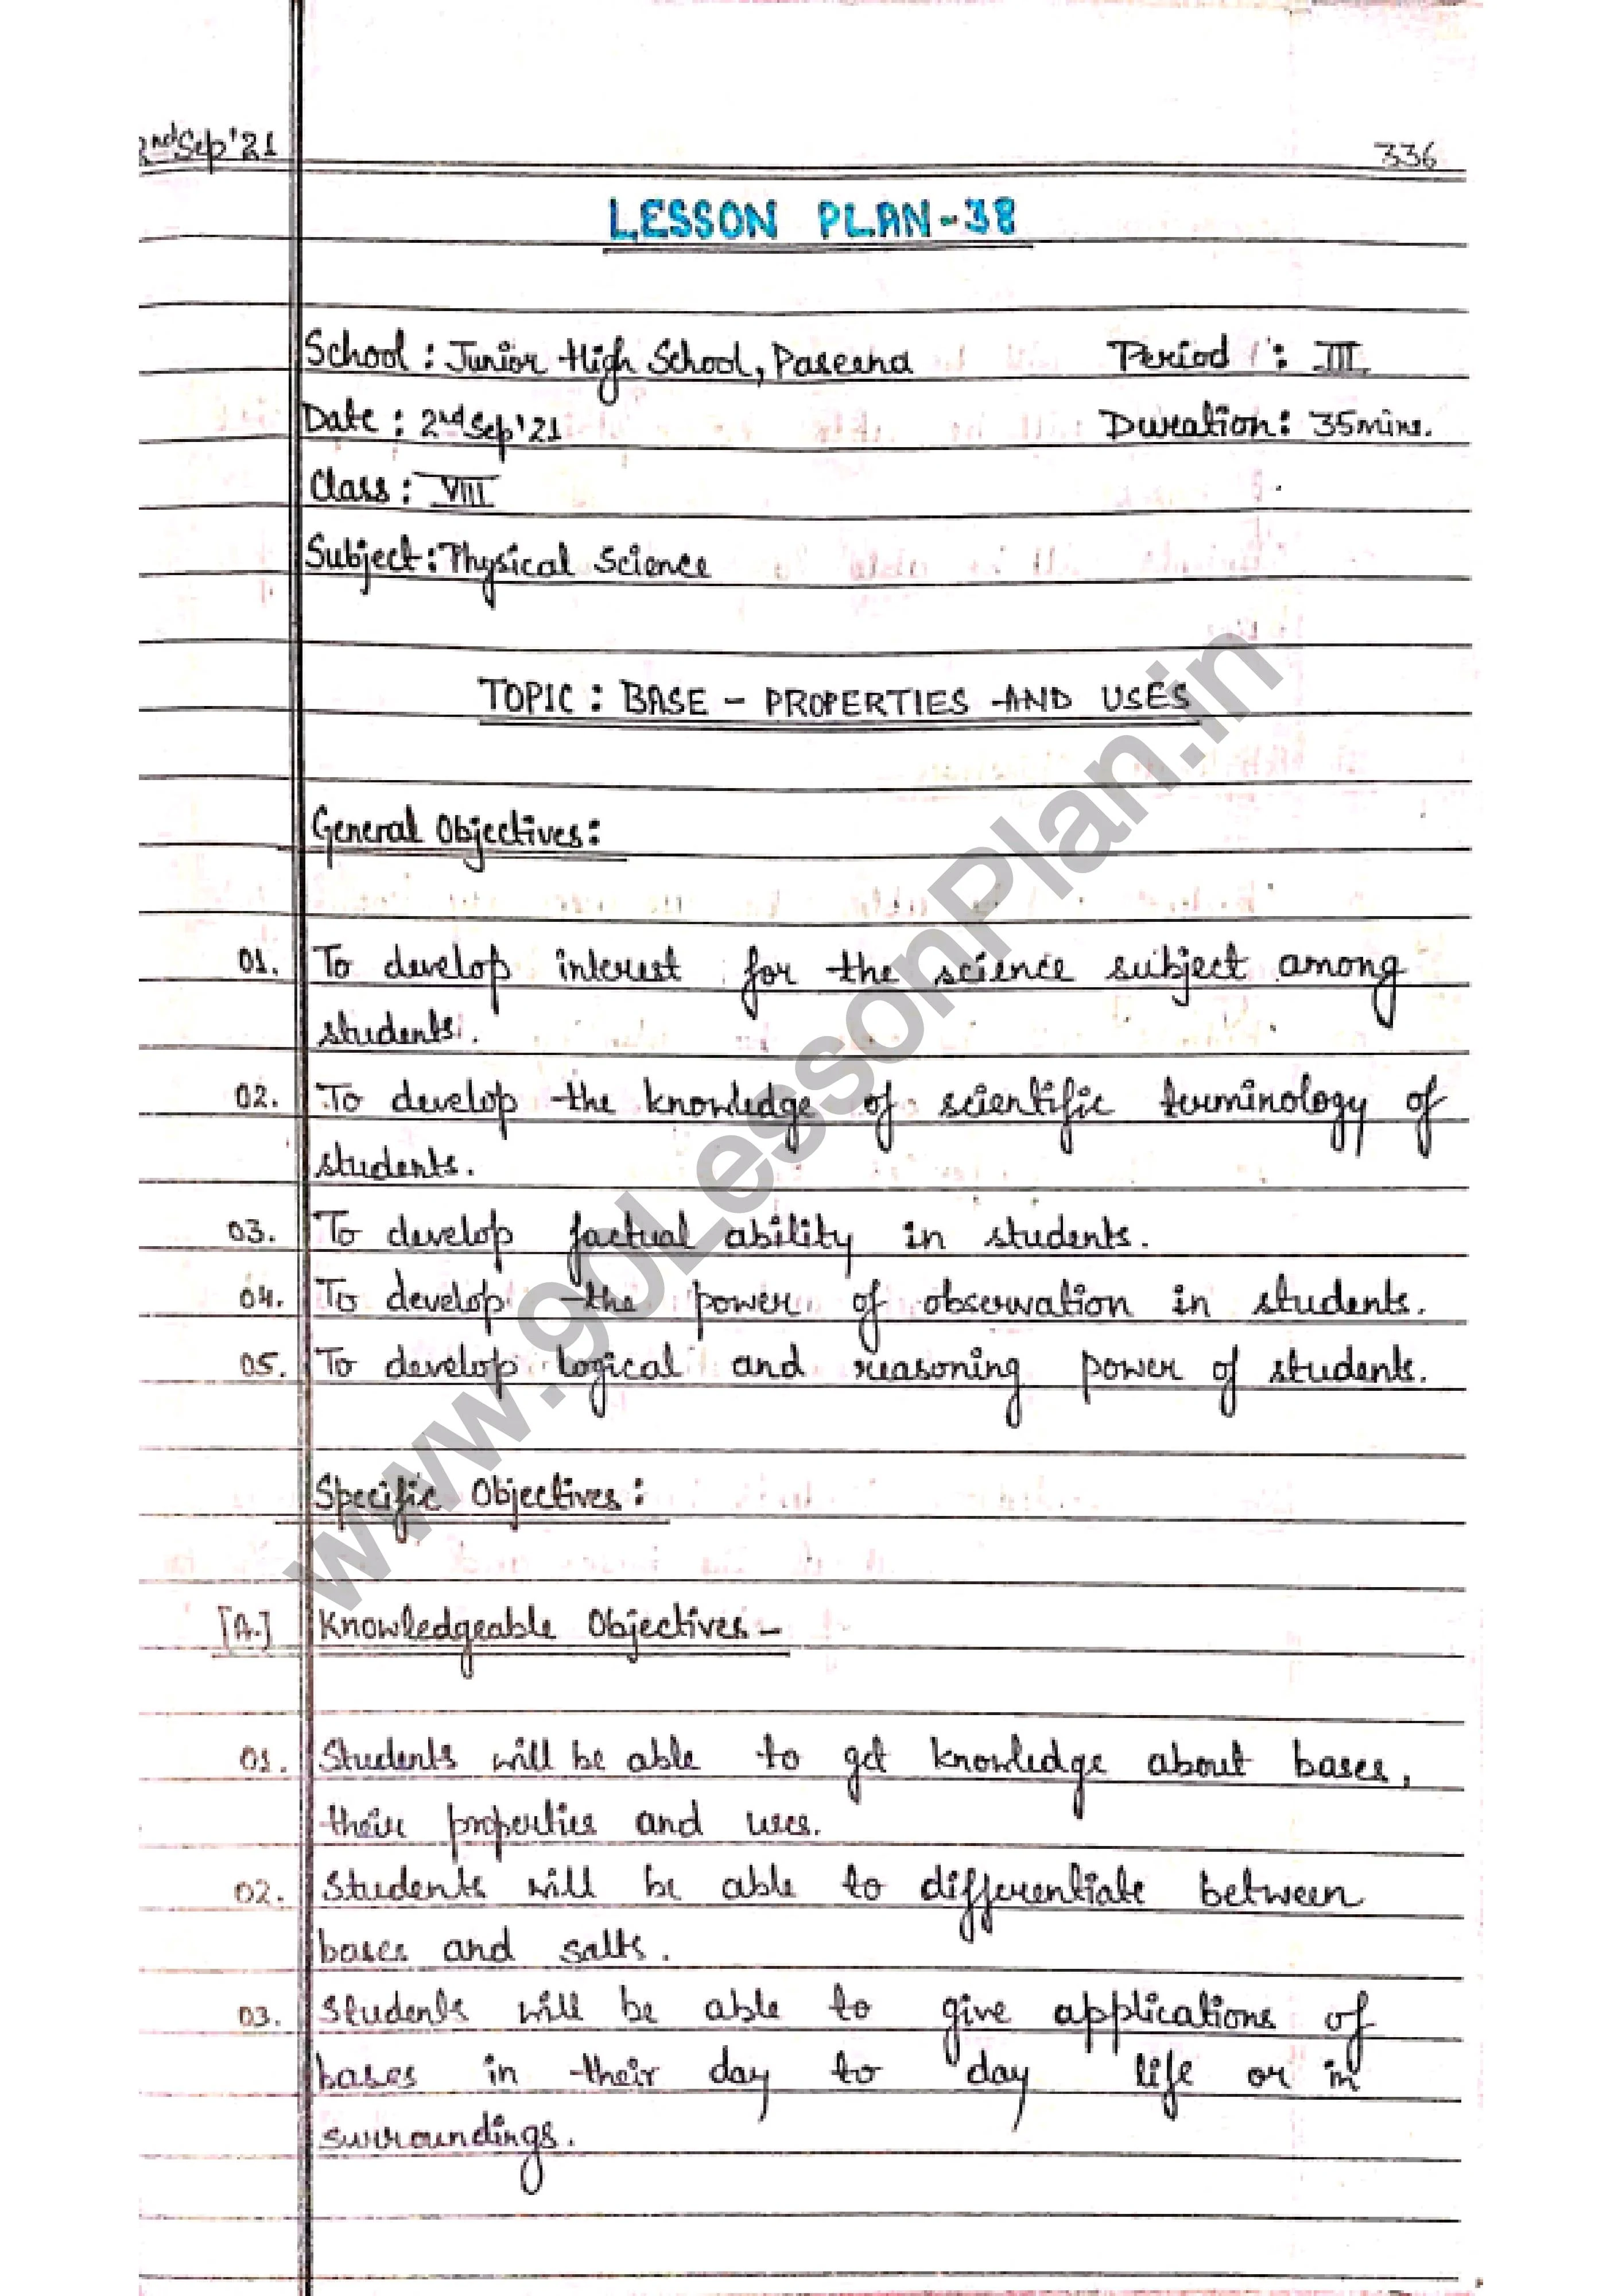 2nd Sep'21
336
LESSON PLAN-38
School: Junior High School, Paseena Period: III
Date: 2nd Sep'21 Duration: 35mins.
Class: VIII
Subject: Physical Science
TOPIC: BASE - PROPERTIES AND USES
General Objectives:
01. To develop interest for the science subject among
students.
02. To develop the knowledge of scientific terminology of
students.
03. To develop factual ability in students.
04. To develop the power of observation in students.
05. To develop logical and reasoning power of students.
Specific Objectives:
[A.] Knowledgeable Objectives -
01. Students will be able to get knowledge about bases,
their properties and uses.
02. Students will be able to differentiate between
bases and salts.
03. Students will be able to give applications of
bases in their day to day life or in
surroundings.
www.90LessonPlan.in